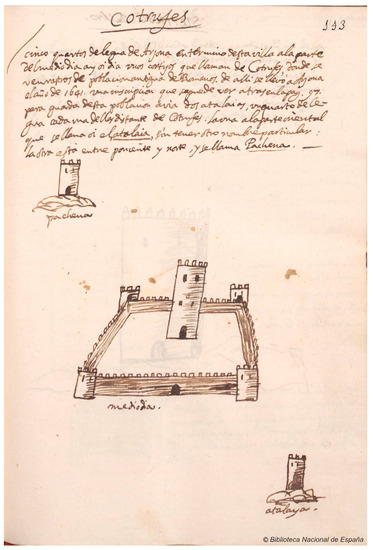 Cotrufes
133
cinco quartos de legua de Arjona en termino desta villa a la parte
del mediodia ay oi dia unos cortijos que llaman de Cotrufes, donde se
ven rastros de poblacion antigua de Romanos, de alli se llevó a Arjona
el año de 1641. una inscripcion que se puede ver atras en la pag. 97.
para guarda desta poblacion avia dos atalaias, un quarto de le-
gua cada una dellas distante de Cotrufes. la una a la parte oriental
que se llama oi el Atalaia, sin tener otro nombre particular:
la otra está entre poniente y norte, y se llama Pachena.
pachena
mediodia.
atalaya.
© Biblioteca Nacional de España